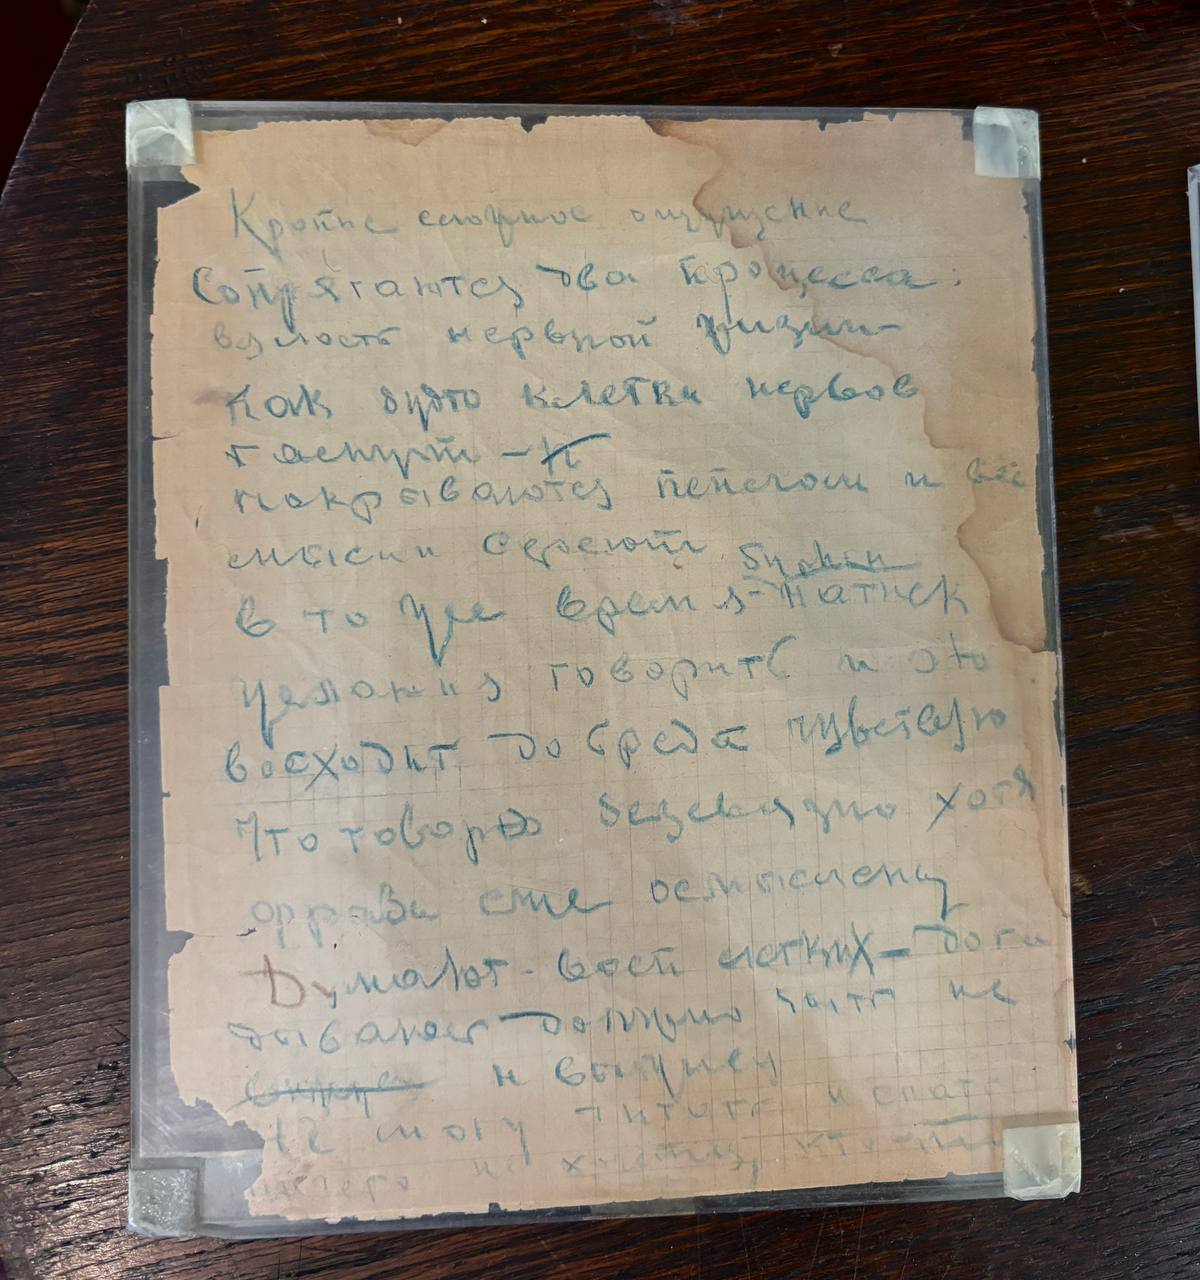 Крайне сложное ощущение
Сопрягаются два процесса:
вялость нервной жизни –
как будто клетки нервов
гаснут –
покрываются пеплом и все
мысли сереют
в то же время – натиск
желания говорить и это
восходит до бреда чувствую
что говорю безсвязно хотя
фразы еще осмыслены
Думают – вост легких – дога
дываюсь – должно быть не
выживу
не могу читать и спать
ничего не хочется,